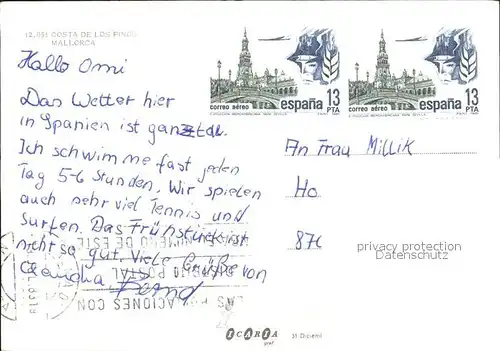 12.051 COSTA DE LOS PINOS
MALLORCA
Hallo Omi
Das Wetter hier
in Spanien ist ganz toll.
Ich schwimme fast jeden
Tag 5-6 Stunden. Wir spielen
auch sehr viel Tennis und
surfen. Das Frühstück ist
nicht so gut. Viele Grüße von
Claudia Bernd
correo aéreo
españa
13
PTA
correo aéreo
españa
13
PTA
An Frau Millik
Ho
87
privacy protection
Datenschutz
NUMERO DE ESTE
POSTAL
LAS RELACIONES CON
ICARIA